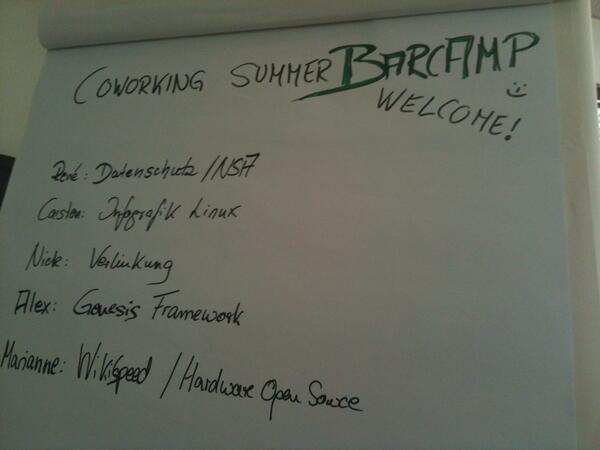 COWORKING SUMMER BARCAMP
WELCOME! :)
René: Datenschutz/NSA
Carsten: Infografik Linux
Nick: Verlinkung
Alex: Genesis Framework
Marianne: Wikispeed / Hardware Open Source